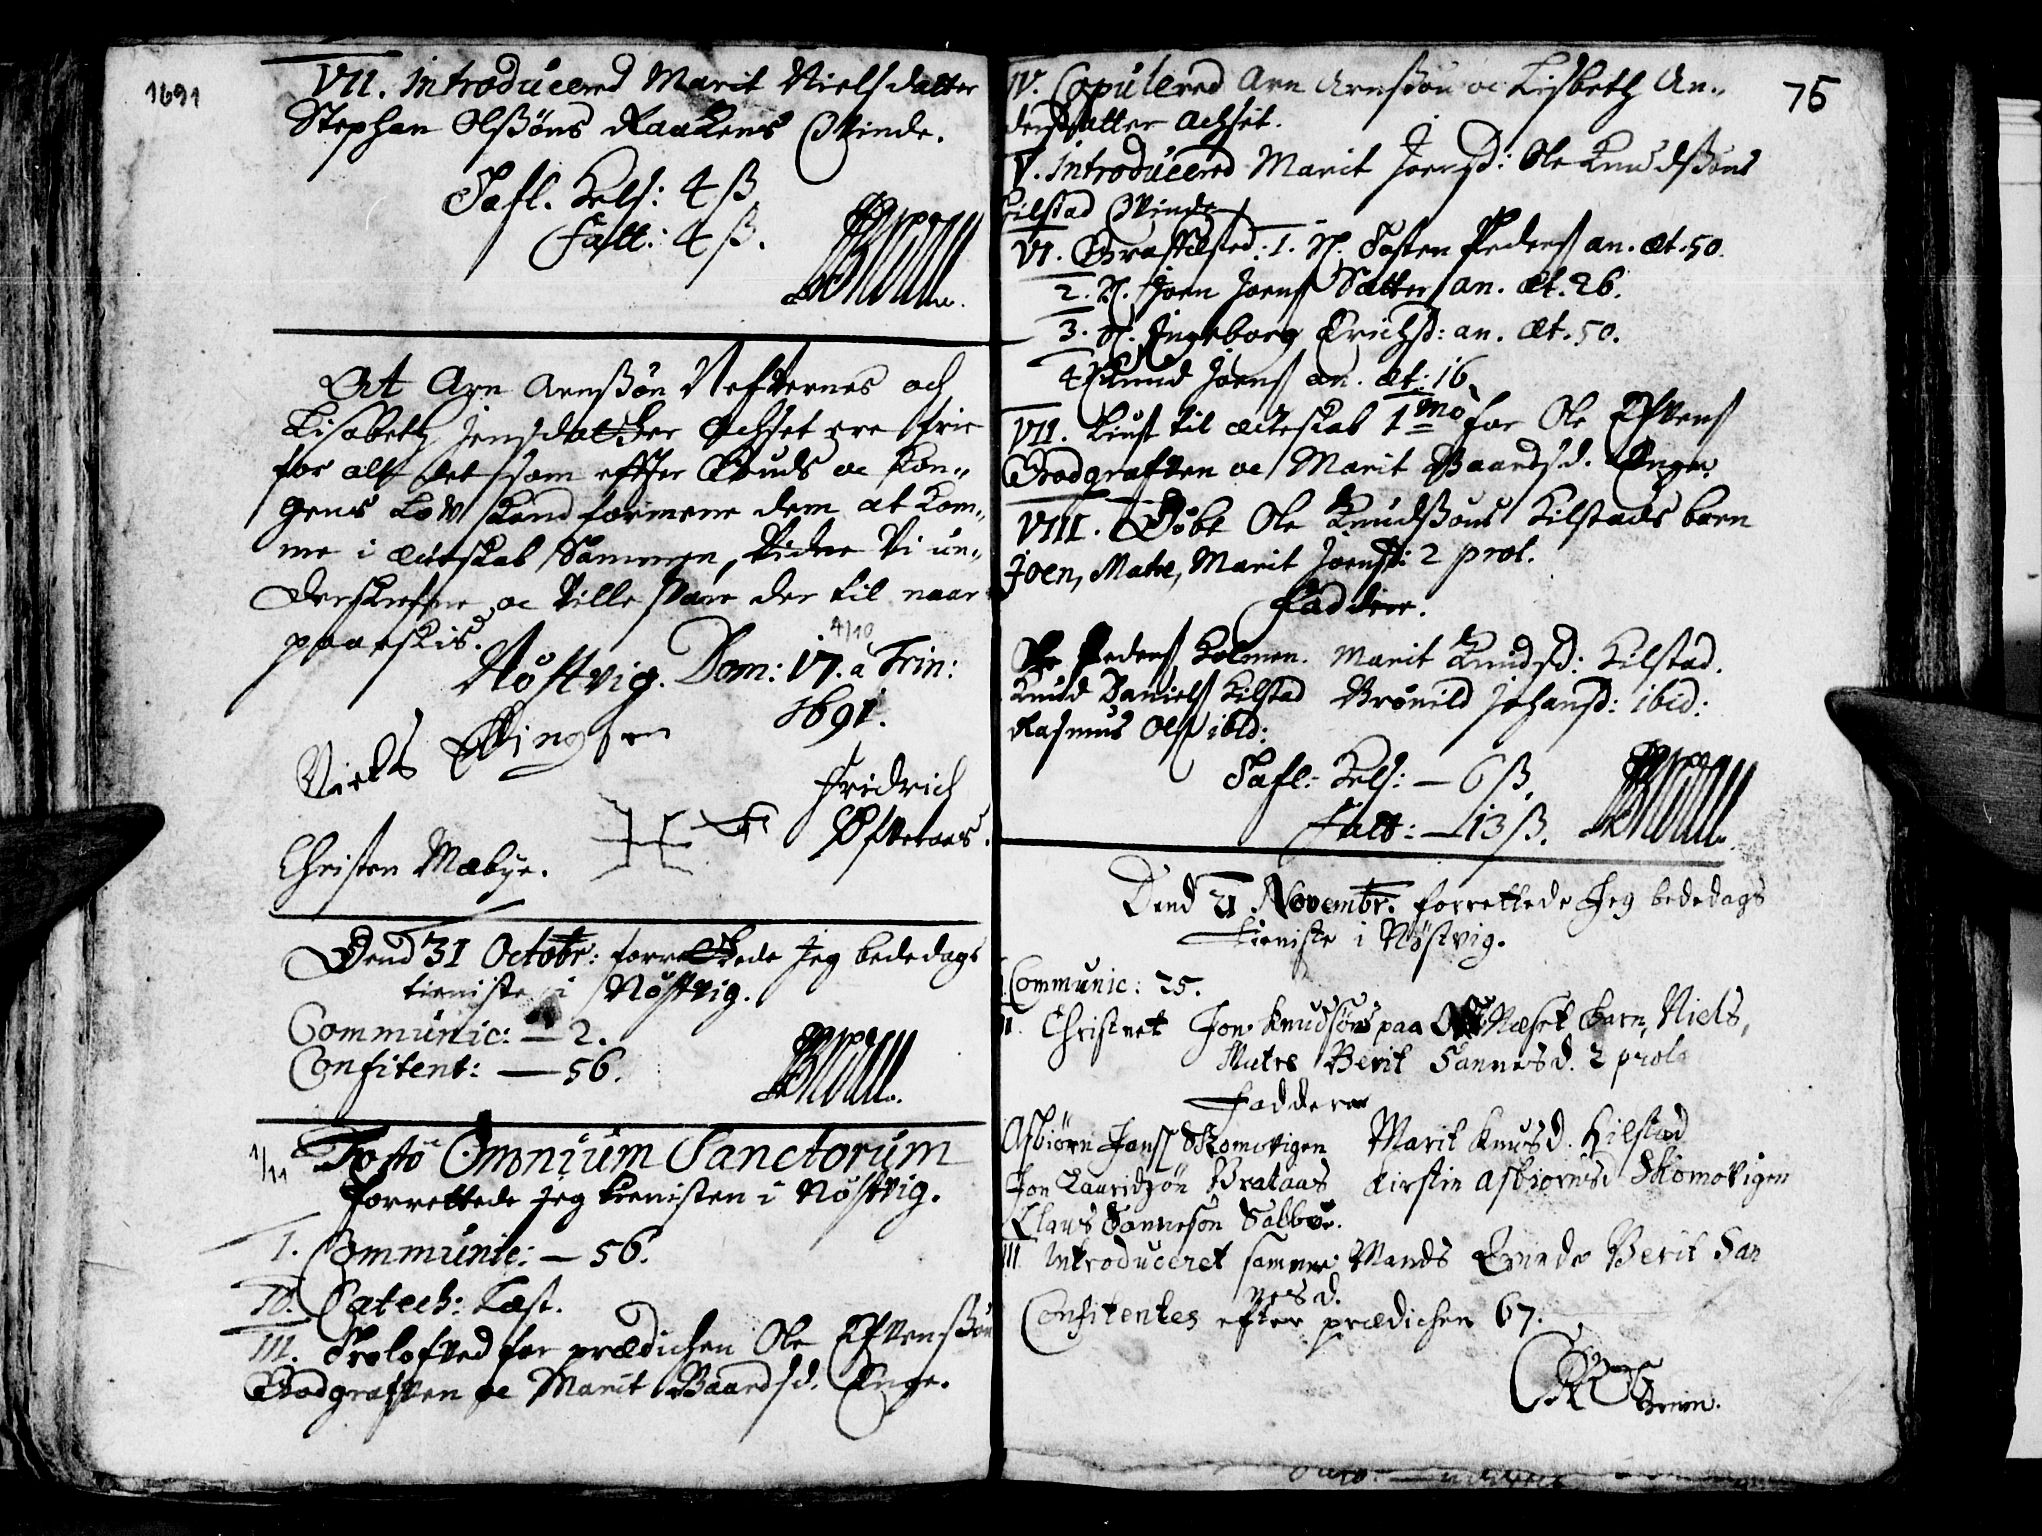 1691
VII. Introducered Marit Nielsdatter
Stephan Olßøns Raakens Qvinde.
Tafl. Kels: 4 ß
Fatt: 4 ß.
At Arn Arnßøn Nefvernes och
Lisabeth Jensdatter Achset ere frie
for alt det som effter Guds oc Kon„
gens Low kand formene dem at kom„
me i ecteskab Sammen, Vidne Vi un„
derskrefne, oc Ville svare der til naar
paaeskis.
4/10
Nøstvig. Dom: 17. a Trin:
1691.
Niels Ellingsen
Fridrich
Christen Mæbye.
Dend 31 Octobr: forrettede Jeg bededags
tieniste i Nøstvig.
Communic: — 2.
Confitent: — 56.
1/11 Festo Omnium Sanctorum
forrettede jeg tienisten i Nøstvig.
I. Communic: — 56.
II. Catech: Læst.
III. Trolofved for prædichen Ole Efvensßøn
Godgrafven oc Marit Baardsd. Enge.
75
IV. Copulered Arn Arnßøn oc Lisbeth An„
dersdatter Achset.
V. Introducered Marit Joensd: Ole Knudßøns
Kilstad Qvinde
VI. Graffæsted: 1. N. Tosten Peders an. æt. 50.
2. N. Joen Joens Sætter an. æt. 26.
3. N. Ingeborg Erichsd: an. æt. 50.
4 Knud Joens an. æt: 16.
VII. Liust til ecteskab 1mo for Ole Efvens
Godgrafven oc Marit Baardsd. Enge.
VIII. Døbt Ole Knudßøns Kilstads barn
Joen, Matre, Marit Joensd: 2 prol.
Faddere.
Peders Holmen. Marit Knudsd: Kilstad.
Knud Daniels Kilstad Brønild Johansd: ibid:
Rasmus Ols ibid:
Tafl: Kels: — 6 ß.
Fatt: — 13 ß.
Dend 21. Novembr. forrettede Jeg bededags
tieniste i Nøstvig.
Communic: 25.
II. Christnet Jon Knudsøns paa Næset barn, Niels,
Matre Berit Hannesd. 2 prole
Faddere
Asbiørn Jonss Skomovigen Marit Knudsd. Kilstad
Jon Lauridzøn Brataas Kirstin Asbiørnsd Skomovigen
Claus Hannesøn
III Introduceret samme Mands Qvinde Berit Han
nesd.
Confitentes efter prædichen 67.